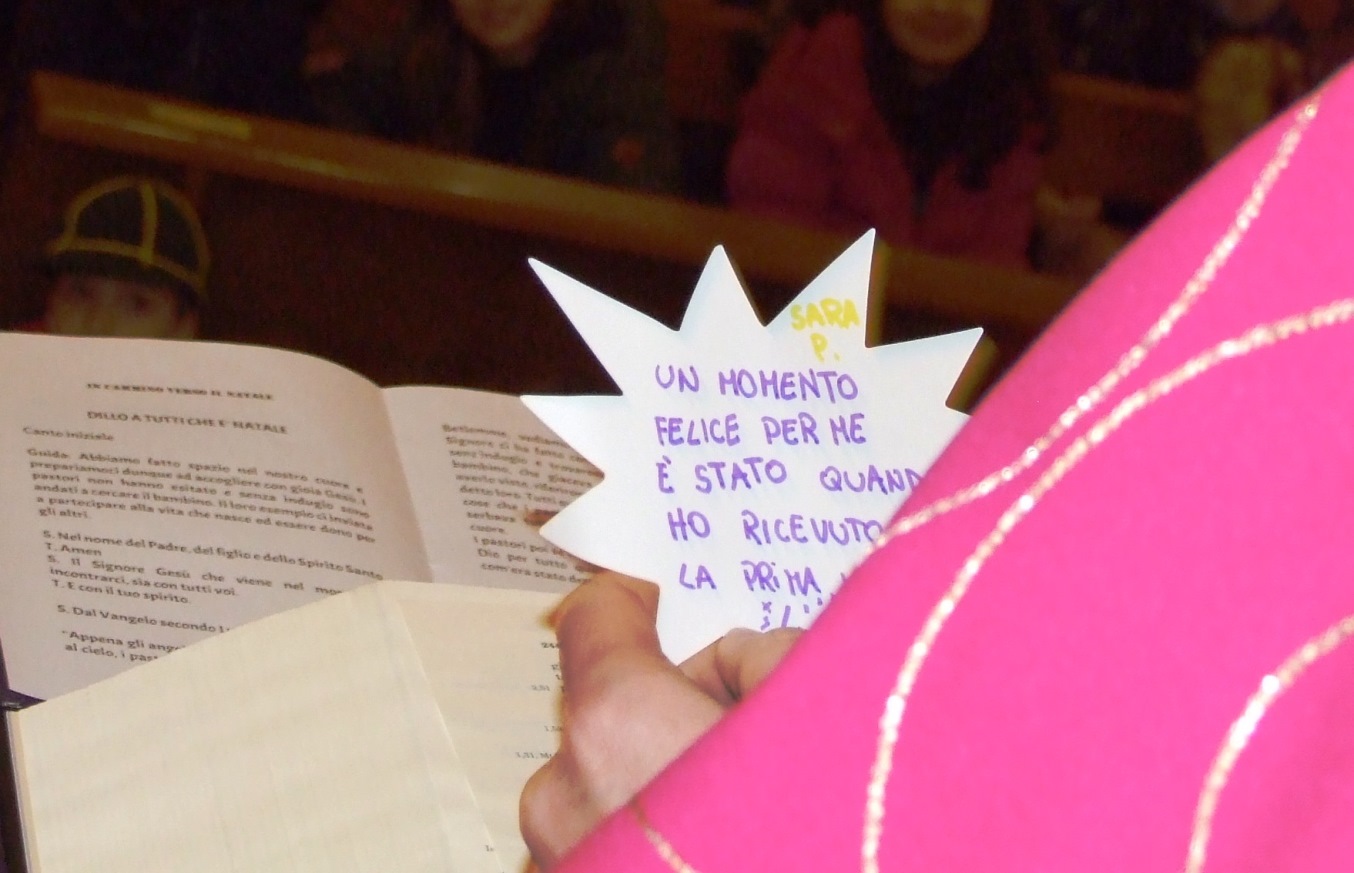 SARA
P.
UN MOMENTO
FELICE PER ME
È STATO QUAND
HO RICEVUTO
LA PRIMA
IN CAMMINO VERSO IL NATALE
DILLO A TUTTI CHE E' NATALE
Canto iniziale
Guida: Abbiamo fatto spazio nel nostro cuore e
prepariamoci dunque ad accogliere con gioia Gesù. I
pastori non hanno esitato e senza indugio sono
andati a cercare il bambino. Il loro esempio ci inviata
a partecipare alla vita che nasce ed essere dono per
gli altri.
S. Nel nome del Padre, del figlio e dello Spirito Santo
T. Amen
S. Il Signore Gesù che viene nel mom
incontrarci, sia con tutti voi.
T. E con il tuo spirito.
S. Dal Vangelo secondo
"Appena gli ange
al cielo, i past
Betlemme, vediam
Signore ci ha fatto
senz'indugio e trovaro
bambino, che giaceva
averlo visto, riferiron
detto loro. Tutti
cose che i
serbava
cuore.
I pastori poi se
Dio per tutto
com'era stato det